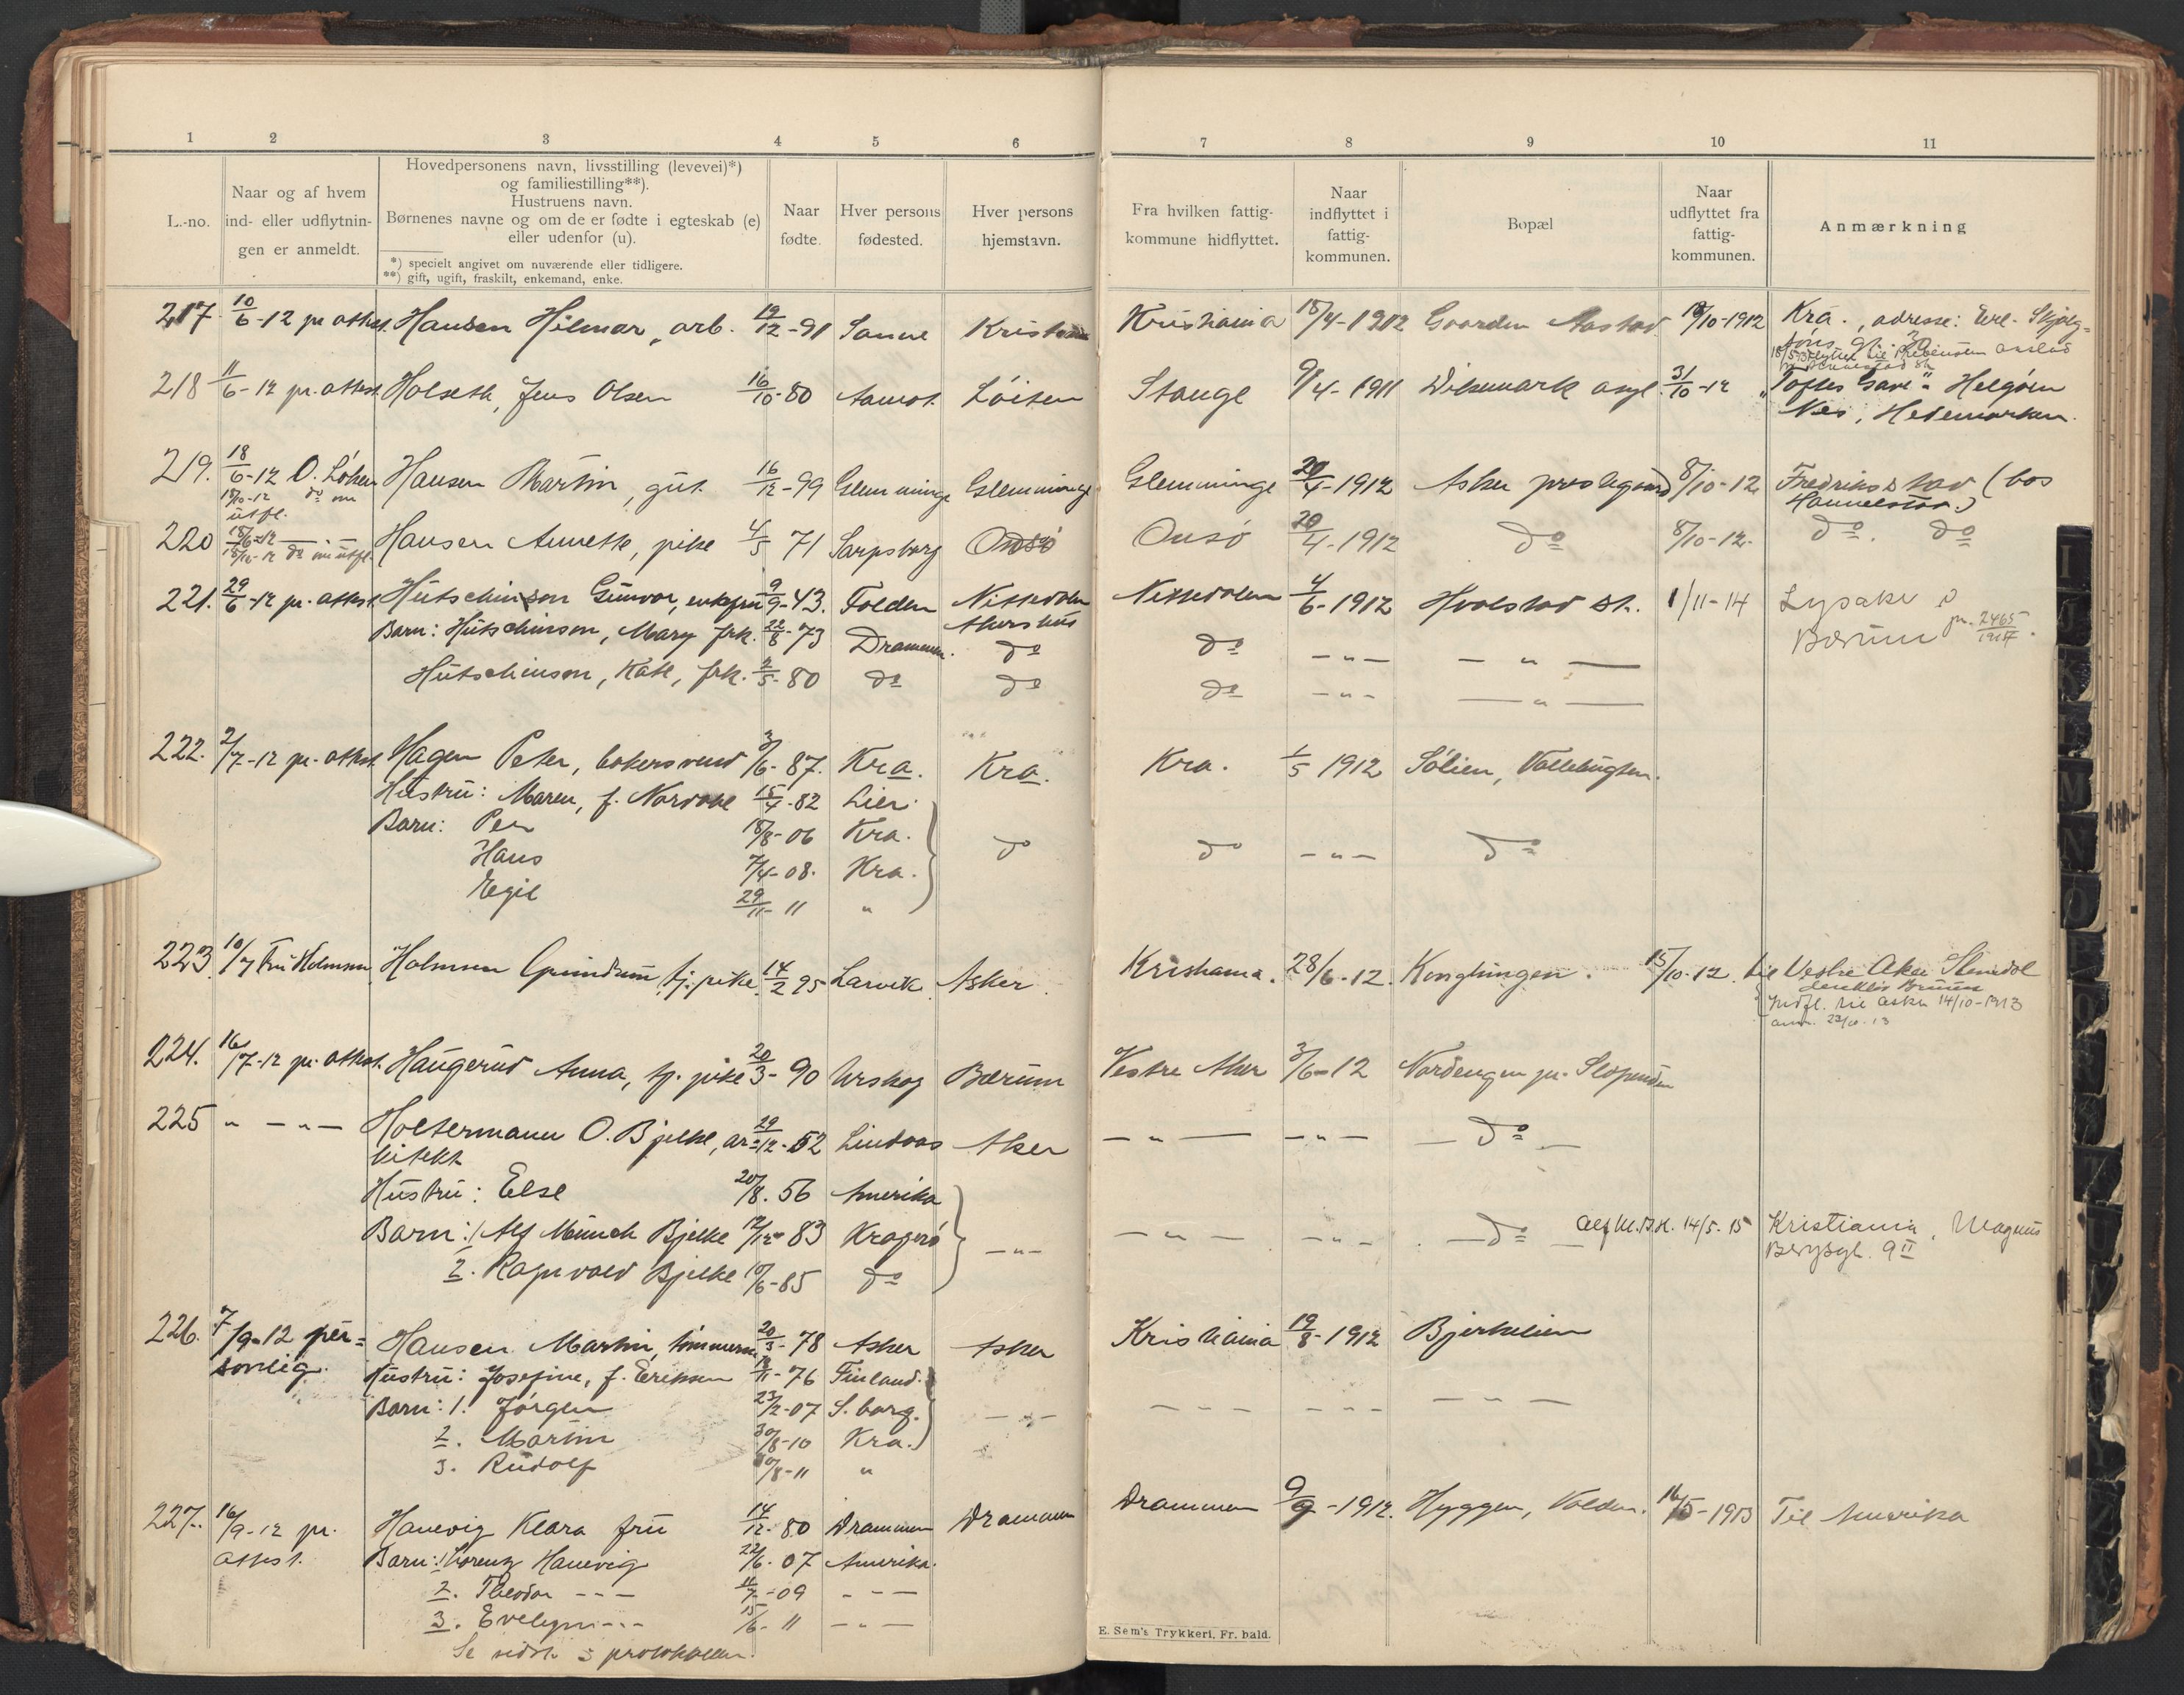 1 2 3 4 5 6 7 8 9 10 11
L.-no.
Naar og af hvem
ind- eller udflytnin-
gen er anmeldt.
Hovedpersonens navn, livsstilling (levevei)*)
og familiestilling**).
Hustruens navn.
Børnenes navne og om de er fødte i egteskab (e)
eller udenfor (u).
*) specielt angivet om nuværende eller tidligere.
**) gift, ugift, fraskilt, enkemand, enke.
Naar
fødte.
Hver persons
fødested.
Hver persons
hjemstavn.
Fra hvilken fattig-
kommune hidflyttet.
Naar
indflyttet i
fattig-
kommunen.
Bopæl
Naar
udflyttet fra
fattig-
kommunen.
Anmærkning
217. 10/6-12 pr attest. Hansen Hilmar, arb. 19/12-91 Sanne Kristiania Kristiania 15/4-1912 Gaarden Aastad 18/10-1912 Kra., adresse:
218 11/6-12 pr. attest. Holseth, Jens Olsen 16/10-80 Aamot Löiten Stange 9/4-1911 Dikemark asyl. 31/10-12 "Toftes Gave" Helgöen
Nes, Hedemarken.
219. 18/6-12 O. Löken Hansen Martin, gut. 16/12-99 Glemminge Glemminge Glemminge 20/4-1912 Asker prestegaard 8/10-12 Fredrikstad (hos
18/10-12 do om
utfl.
220 18/6-12 — " — Hansen Annette, pike 4/5 71 Sarpsborg Onsö Onsö 20/4-1912 do 8/10-12. do. do
18/10-12 do om utfl.
221. 29/6-12 pr. attest. Hutschinson Gunvor, enkefru 9/9-43. Folden Nittedalen Nittedalen 4/6-1912 Hvalstad st. 1/11-14 Lysaker
Akershus
Bærum pr. 2465/1914.
Barn: Hutschinson, Mary frk. 22/8-73 Drammen. do do — " — — " —
Hutschinson, Kate, frk. 2/5-80 do do do — " — — " —
222. 2/7-12 pr. attest. Hagen Peter, bakersvend 3/6-87. Kra. Kra. Kra. 1/5 1912 Sölien, Vollebugten.
Hustru: Maren, f. Nordahl 15/4-82 Lier.
Barn: Per 18/8-06 Kra.
Hans 7/4-08. Kra. do do — " — do
Egil 29/11-11 "
223. 10/7 Fru Holmsen Holmsen Gudrun, tj. pike. 14/2 95 Larvik Asker. Kristiania. 28/6-12. Konglungen. 15/10-12. til Vestre Aker
Indfl. til Asker 14/10-1913
224. 16/7-12 pr. attest. Haugerud Anna, tj. pike 20/3-90 Urskog Bærum Vestre Aker 3/6-12 Nordengen pr. Slependen
225 " — " — Holtermann O. Bjelke, ar- 29/12-52 Lindaas Aker — " — — " — — do —
kitekt
Hustru: Else 20/8. 56 Amerika
Barn: 1 Alf Munch Bjelke 12/12-83 Kragerö — " — — " — — " — — do — Alf M.B.H. 14/5-15 Kristiania, Magnus
Bergsgt. 9 II
2. Ragnvald Bjelke 10/6-85 do
226. 7/9-12 per-
sonlig.
Hansen Martin, tömmerm. 20/3-78 Asker Asker Kristiania 19/8-1912 Bjerkelien
Hustru: Josefine, f. Eriksen 18/11-76 Finland.
Barn: 1. Jörgen 23/2-07 S.borg. — " — — " — — " — — " —
2. Martin 30/8-10 Kra.
3. Rudolf 30/8-11 "
227. 16/9-12 pr.
attest.
Hanevig Klara fru 14/12-80 Drammen Drammen Drammen 9/9-1912. Hyggen, Valden. 16/5-1913 Til Amerika
Barn: 1 Lorenz Hanevig 22/6-07 Amerika.
2. Theodor — " — 11/7-09 — " —
3. Evelyn — " — 15/6-11 — " —
Se sidste 3 protokollen.
E. Sem's Trykkeri, Fr. hald.